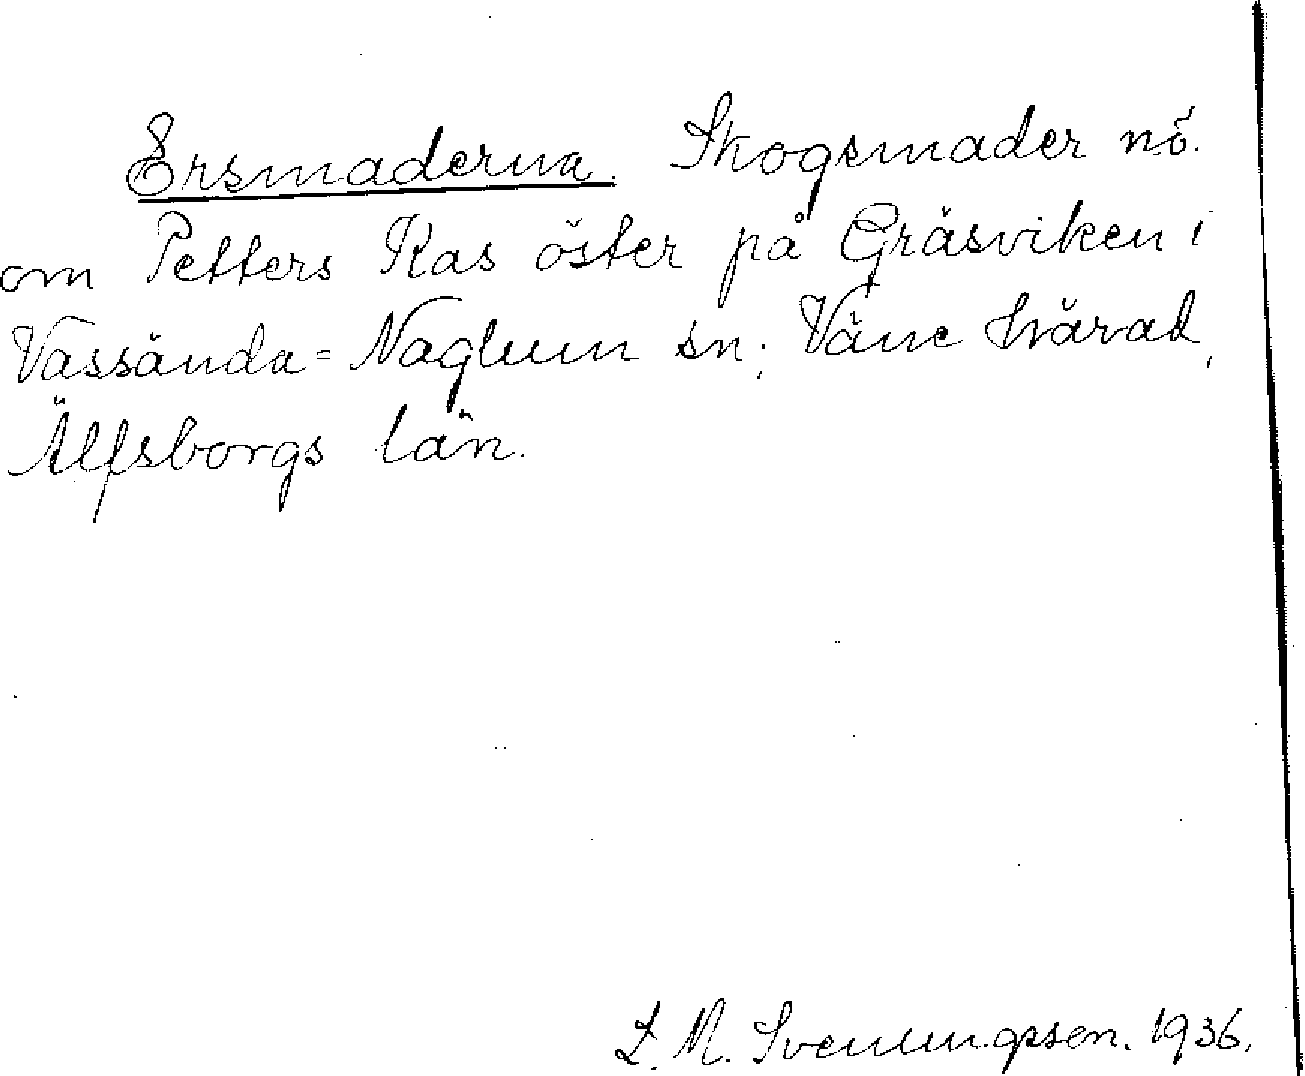 Ersmaderna. Skogsmader nö.
om Petters Kas öster på Gräsviken i
Vassända-Naglum sn; Väne härad,
Älfsborgs län.
L. M. Svenungsson. 1936.